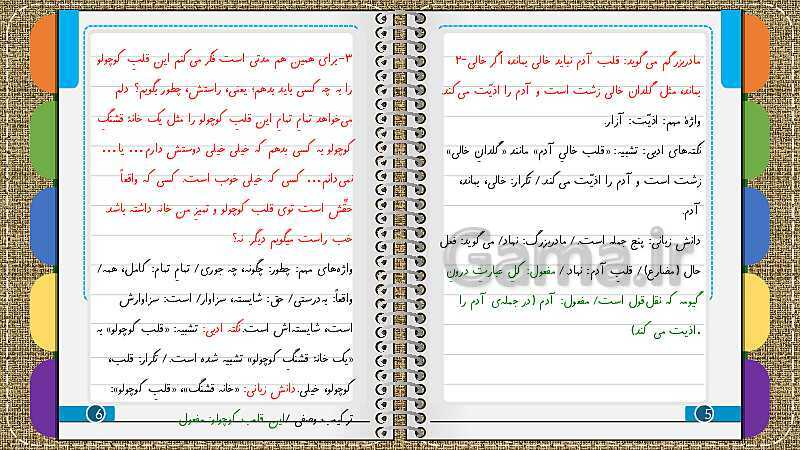 مادربزرگم می‌گوید: قلب آدم نباید خالی بماند، اگر خالی-۲
بماند، مثل گلدان خالی زشت است و آدم را اذیّت می‌کند.
واژهٔ مهم: اذیّت: آزار.
نکته‌های ادبی: تشبیه: «قلب خالیِ آدم» مانند «گلدانِ خالی»
زشت است و آدم را اذیّت می‌کند./ تکرار: خالی، بماند،
آدم.
دانش زبانی: پنج جمله است./ مادربزرگ: نهاد/ می‌گوید: فعل
حال (مضارع)/ قلب آدم: نهاد/ مفعول: کل عبارتِ درون
گیومه که نقل‌قول است/ مفعول: آدم (در جمله‌ی آدم را
اذیت می کند).
5
۳-برای همین هم مدتی است فکر می‌کنم این قلب کوچولو
را به چه کسی باید بدهم؛ یعنی، راستش، چطور بگویم؟ دلم
می‌خواهد تمامِ تمامِ این قلب کوچولو را مثل یک خانهٔ قشنگِ
کوچولو به کسی بدهم که خیلی خیلی دوستش دارم... یا...
نمی‌دانم... کسی که خیلی خوب است. کسی که واقعاً
حقّش است توی قلب کوچولو و تمیزِ من خانه داشته باشد.
خب راست میگویم دیگر. نه؟
واژه‌های مهم: چطور: چگونه، چه جوری/ تمامِ تمام: کامل، همه/
واقعاً: به‌درستی/ حق: شایسته، سزاوار/ است: سزاوارش
است، شایسته‌اش است.نکته ادبی: تشبیه: «قلب کوچولو» به
«یک خانهٔ قشنگِ کوچولو» تشبیه شده است./ تکرار: قلب،
کوچولو، خیلی.دانش زبانی: «خانه قشنگ»، «قلب کوچولو»:
ترکیب وصفی /این قلب کوچولو: مفعول
6
Gama.ir